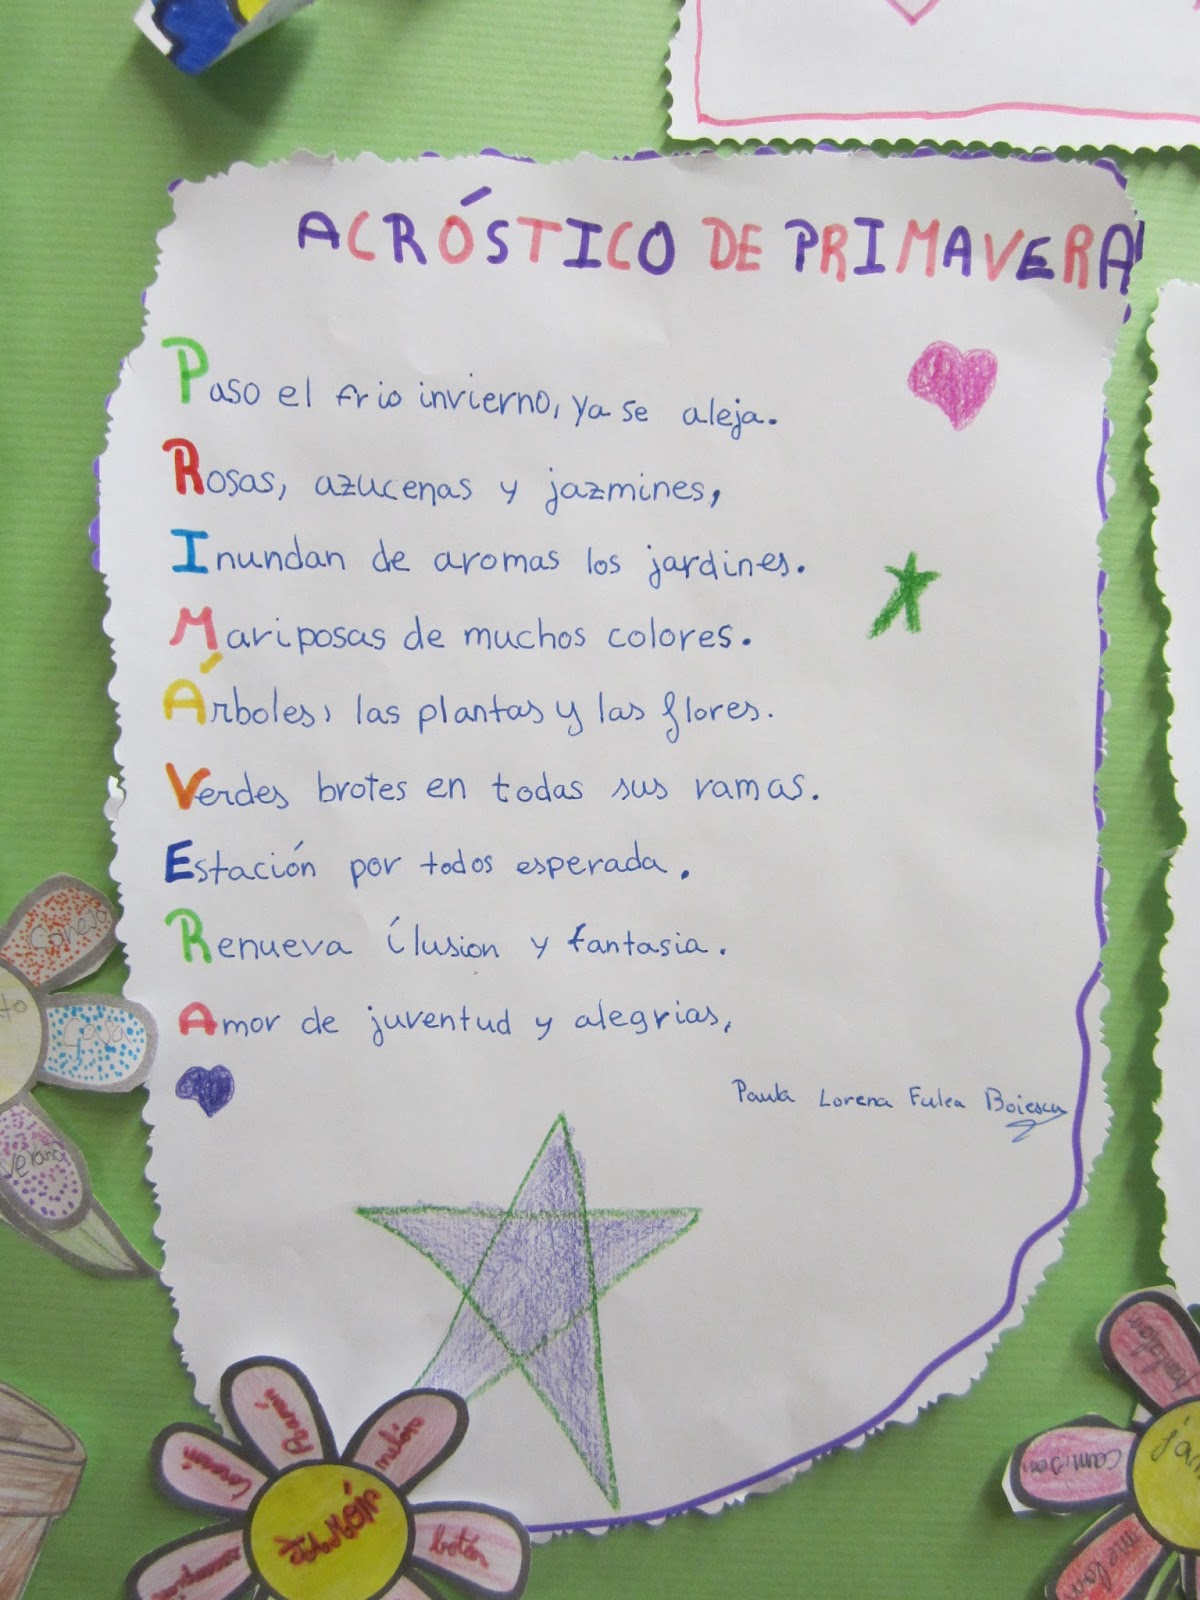 ACRÓSTICO DE PRIMAVERA
Paso el frio invierno, ya se aleja.
Rosas, azucenas y jazmines,
Inundan de aromas los jardines.
Mariposas de muchos colores.
Árboles, las plantas y las flores.
Verdes brotes en todas sus ramas.
Estación por todos esperada.
Renueva ilusion y fantasia.
Amor de juventud y alegrias,
Paula Lorena Fulea Boiescu
Conejo
Verano
botón
camisa
melon